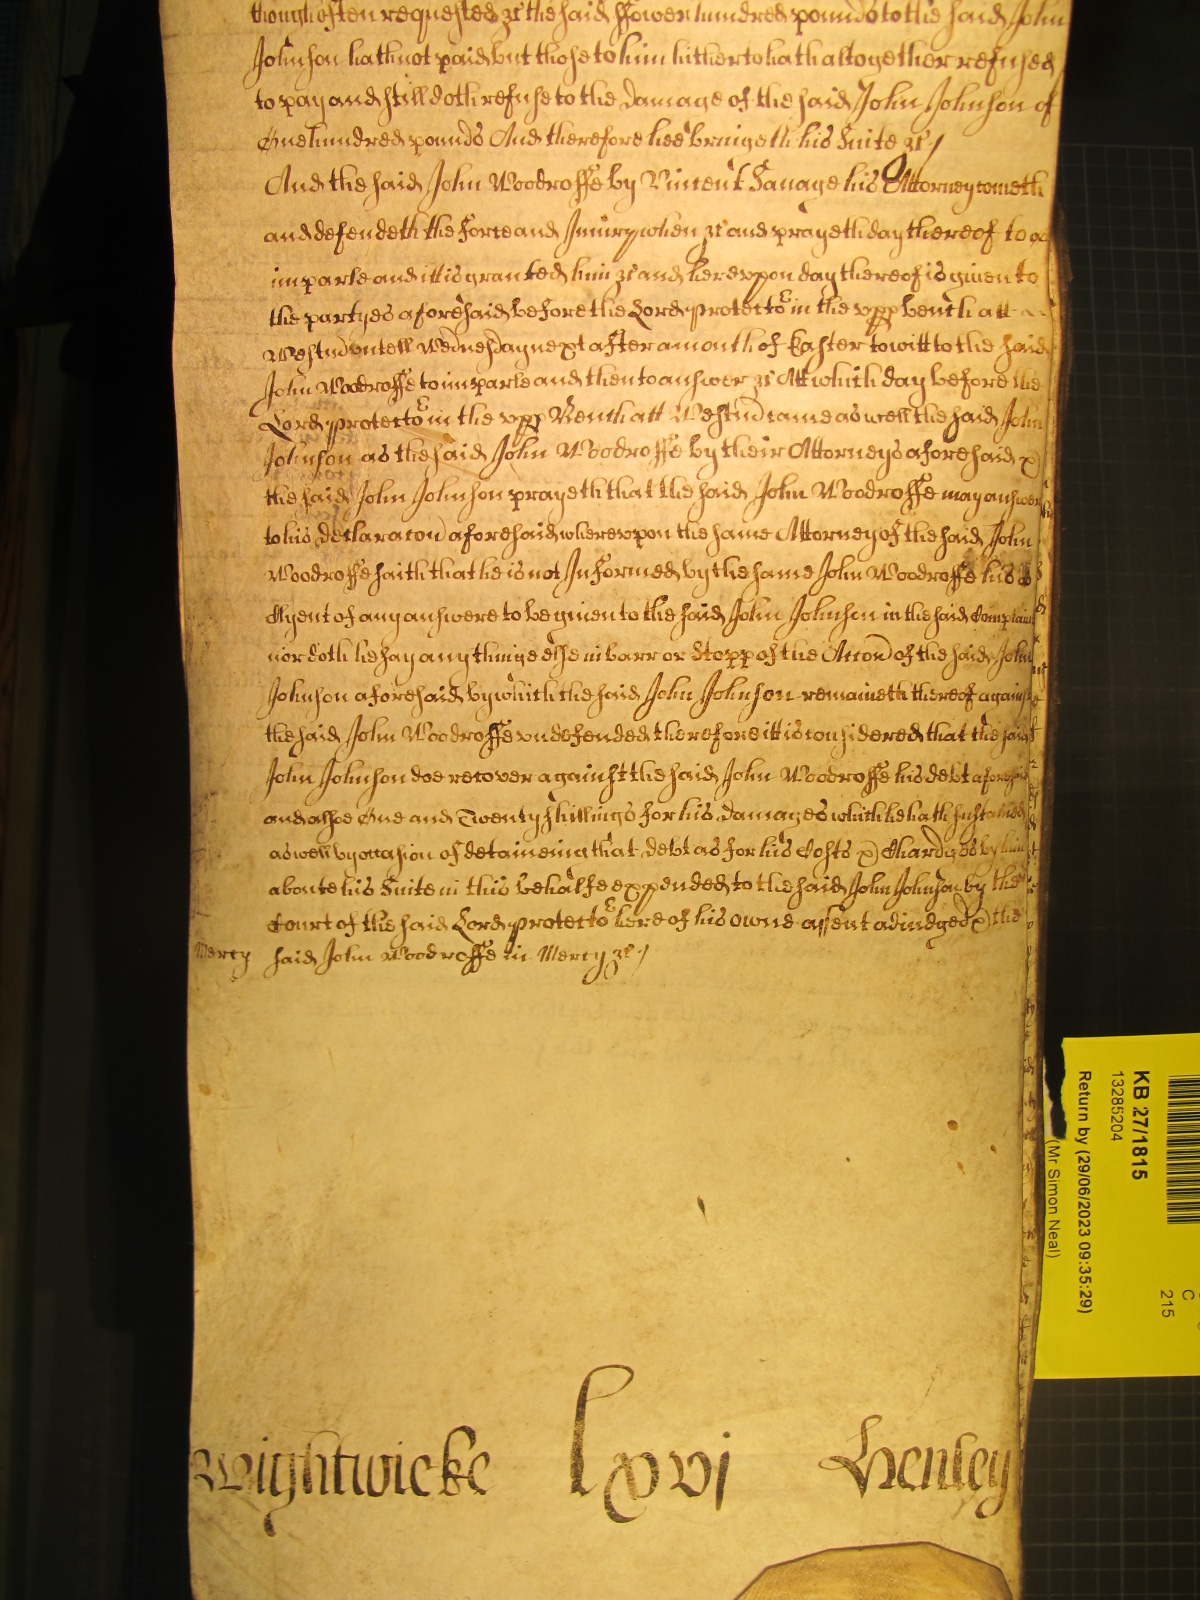 though often requested &c the said ffower hundred pounds to the said John
Johnson hath not paid but those to him hitherto hath altogether refused
to pay and still doth refuse to the damage of the said John Johnson of
One hundred pounds And therefore hee bringeth his Suite &c /
And the said John Woodroffe by Vincent Savage his Attorney cometh
and defendeth the force and Iniury when &c and prayeth day thereof to
imparle and itt is granted him &c and herevpon day thereof is given to
the partyes aforesaid before the Lord protector in the vpp bench att
Westm vntill Wednesday next after a month of Easter to witt to the said
John Woodroffe to imparle and then to answer &c Att which day before the
Lord protector in the vpp Bench att Westm came as well the said John
Johnson as the said John Woodroffe by their Attorneys aforesaid &
the said John Johnson prayeth that the said John Woodroffe may answer
to his declaracon aforesaid wherevpon the same Attorney of the said John
Woodroffe saith that he is not Informed by the same John Woodroffe his
Clyent of any answere to be given to the said John Johnson in the said Complaint
nor doth he say any thinge else in barr or Stopp of the Accon of the said John
Johnson aforesaid by which the said John Johnson remaineth thereof against
the said John Woodroffe vndefended therefore itt is considered that the said
John Johnson doe recover against the said John Woodroffe his debt aforesaid
and alsoe One and Twenty shillings for his damages which he hath sustained
as well by occasion of detaineing that debt as for his Costs & Chardges by him
about his Suite in this behalfe expended to the said John Johnson by the
Court of the said Lord protector here of his owne assent adiudged & the
Mercy said John Woodroffe in Mercy &c /
Wightwicke lxvi Henley
KB 27/1815
13285204
Return by (29/06/2023 09:35:29)
(Mr Simon Neal)
C
215